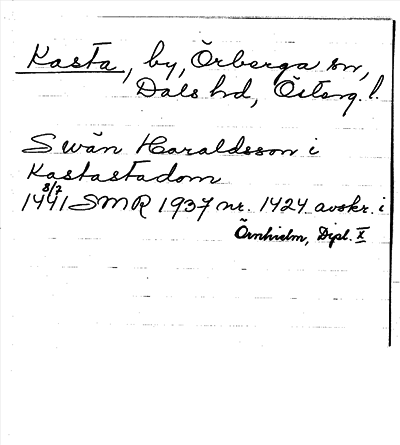 Kasta, by, Örberga sn,
Dals hd, Österg. l.
Swän Haraldsson i
Kastastadom
8/7
1441 SMR 1937 nr. 1424 avskr. i
Örnhielm, Dipl. X